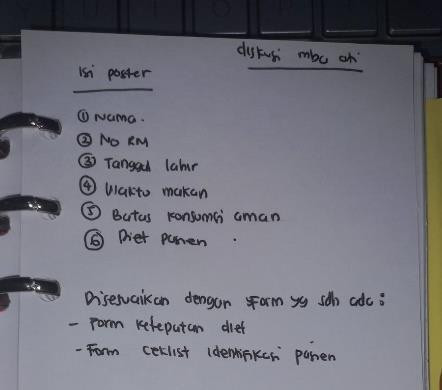 diskusi mba ati
Isi poster
① Nama.
② No RM
③ Tanggal lahir
④ Waktu makan
⑤ Batas konsumsi aman
⑥ Diet pasien.
Disesuaikan dengan form yg sdh ada:
- Form ketepatan diet
- Form ceklist identifikasi pasien